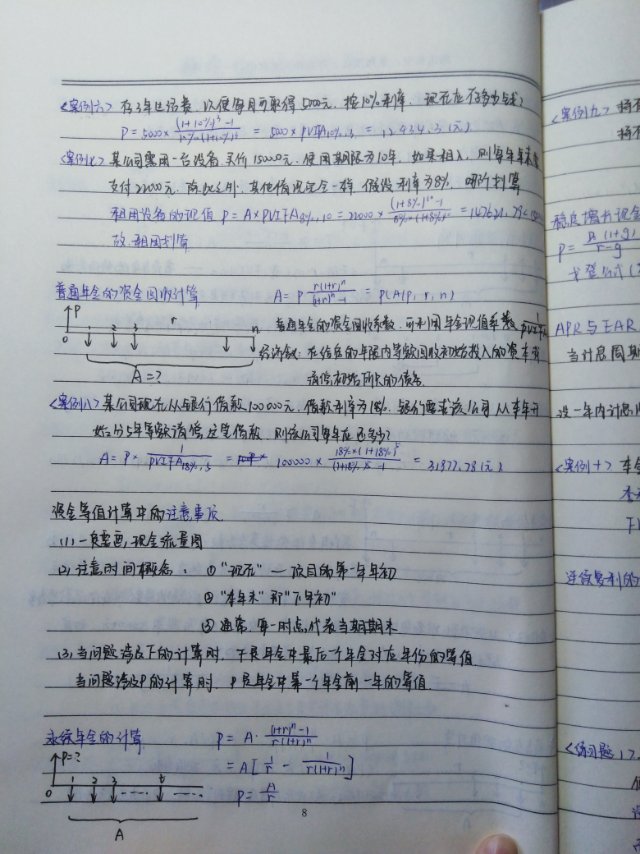 <案例六> 存3年生活费,以便每月可取得5000元,按10%利率,现在应存多少钱?
P = 5000 × ((1+10%)³-1)/(10%(1+10%)³) = 5000 × PVIFA10%,3 = 12434.3(元)
<案例七> 某公司需用一台设备,买价150000元,使用期限为10年,如果租入,则每年年末需
支付22000元,除此之外,其他情况完全一样,假设利率为8%,哪个划算
租用设备的现值 P = A×PVIFA8%,10 = 22000 × ((1+8%)¹⁰-1)/(8%×(1+8%)¹⁰) = 147621.79 <
故租用划算
普通年金的资金回收计算 A = P r(1+r)ⁿ/((1+r)ⁿ-1) = P(A/P, r, n)
P
0 1 2 3 r n
A = ?
普通年金的资金回收系数,可利用年金现值系数
经济含义:在给定的年限内等额回收初始投入的资本或
清偿初始所欠的债务
<案例八> 某公司现在从银行借款100000元,借款利率为18%,银行要求该公司从本年开
始分5年等额清偿这笔借款,则该公司每年应还多少?
A = P · 1/PVIFA18%,5 = 100000 × 18%×(1+18%)⁵/((1+18%)⁵-1) = 31977.78(元)
资金等值计算中的注意事项
(1) 一定要画现金流量图
(2) 注意时间概念: ① "现在" — 项目的第一年年初
② "本年末" 即 "下年初"
③ 通常,每一时点代表当期期末
(3) 当问题涉及F的计算时,F是年金中最后一个年金对应年份的等值
当问题涉及P的计算时,P是年金中第一个年金前一年的等值
永续年金的计算 P = A · ((1+r)ⁿ-1)/(r(1+r)ⁿ)
= A[1/r - 1/(r(1+r)ⁿ)]
P = A/r
P=?
0 1 2 3 t
A
8
<案例九>
稳定增长现金
P = (1+g)/(r-g)
APR与EAR
当计息周期
设一年内计息
<案例十>
连续复利的
<练习题1>